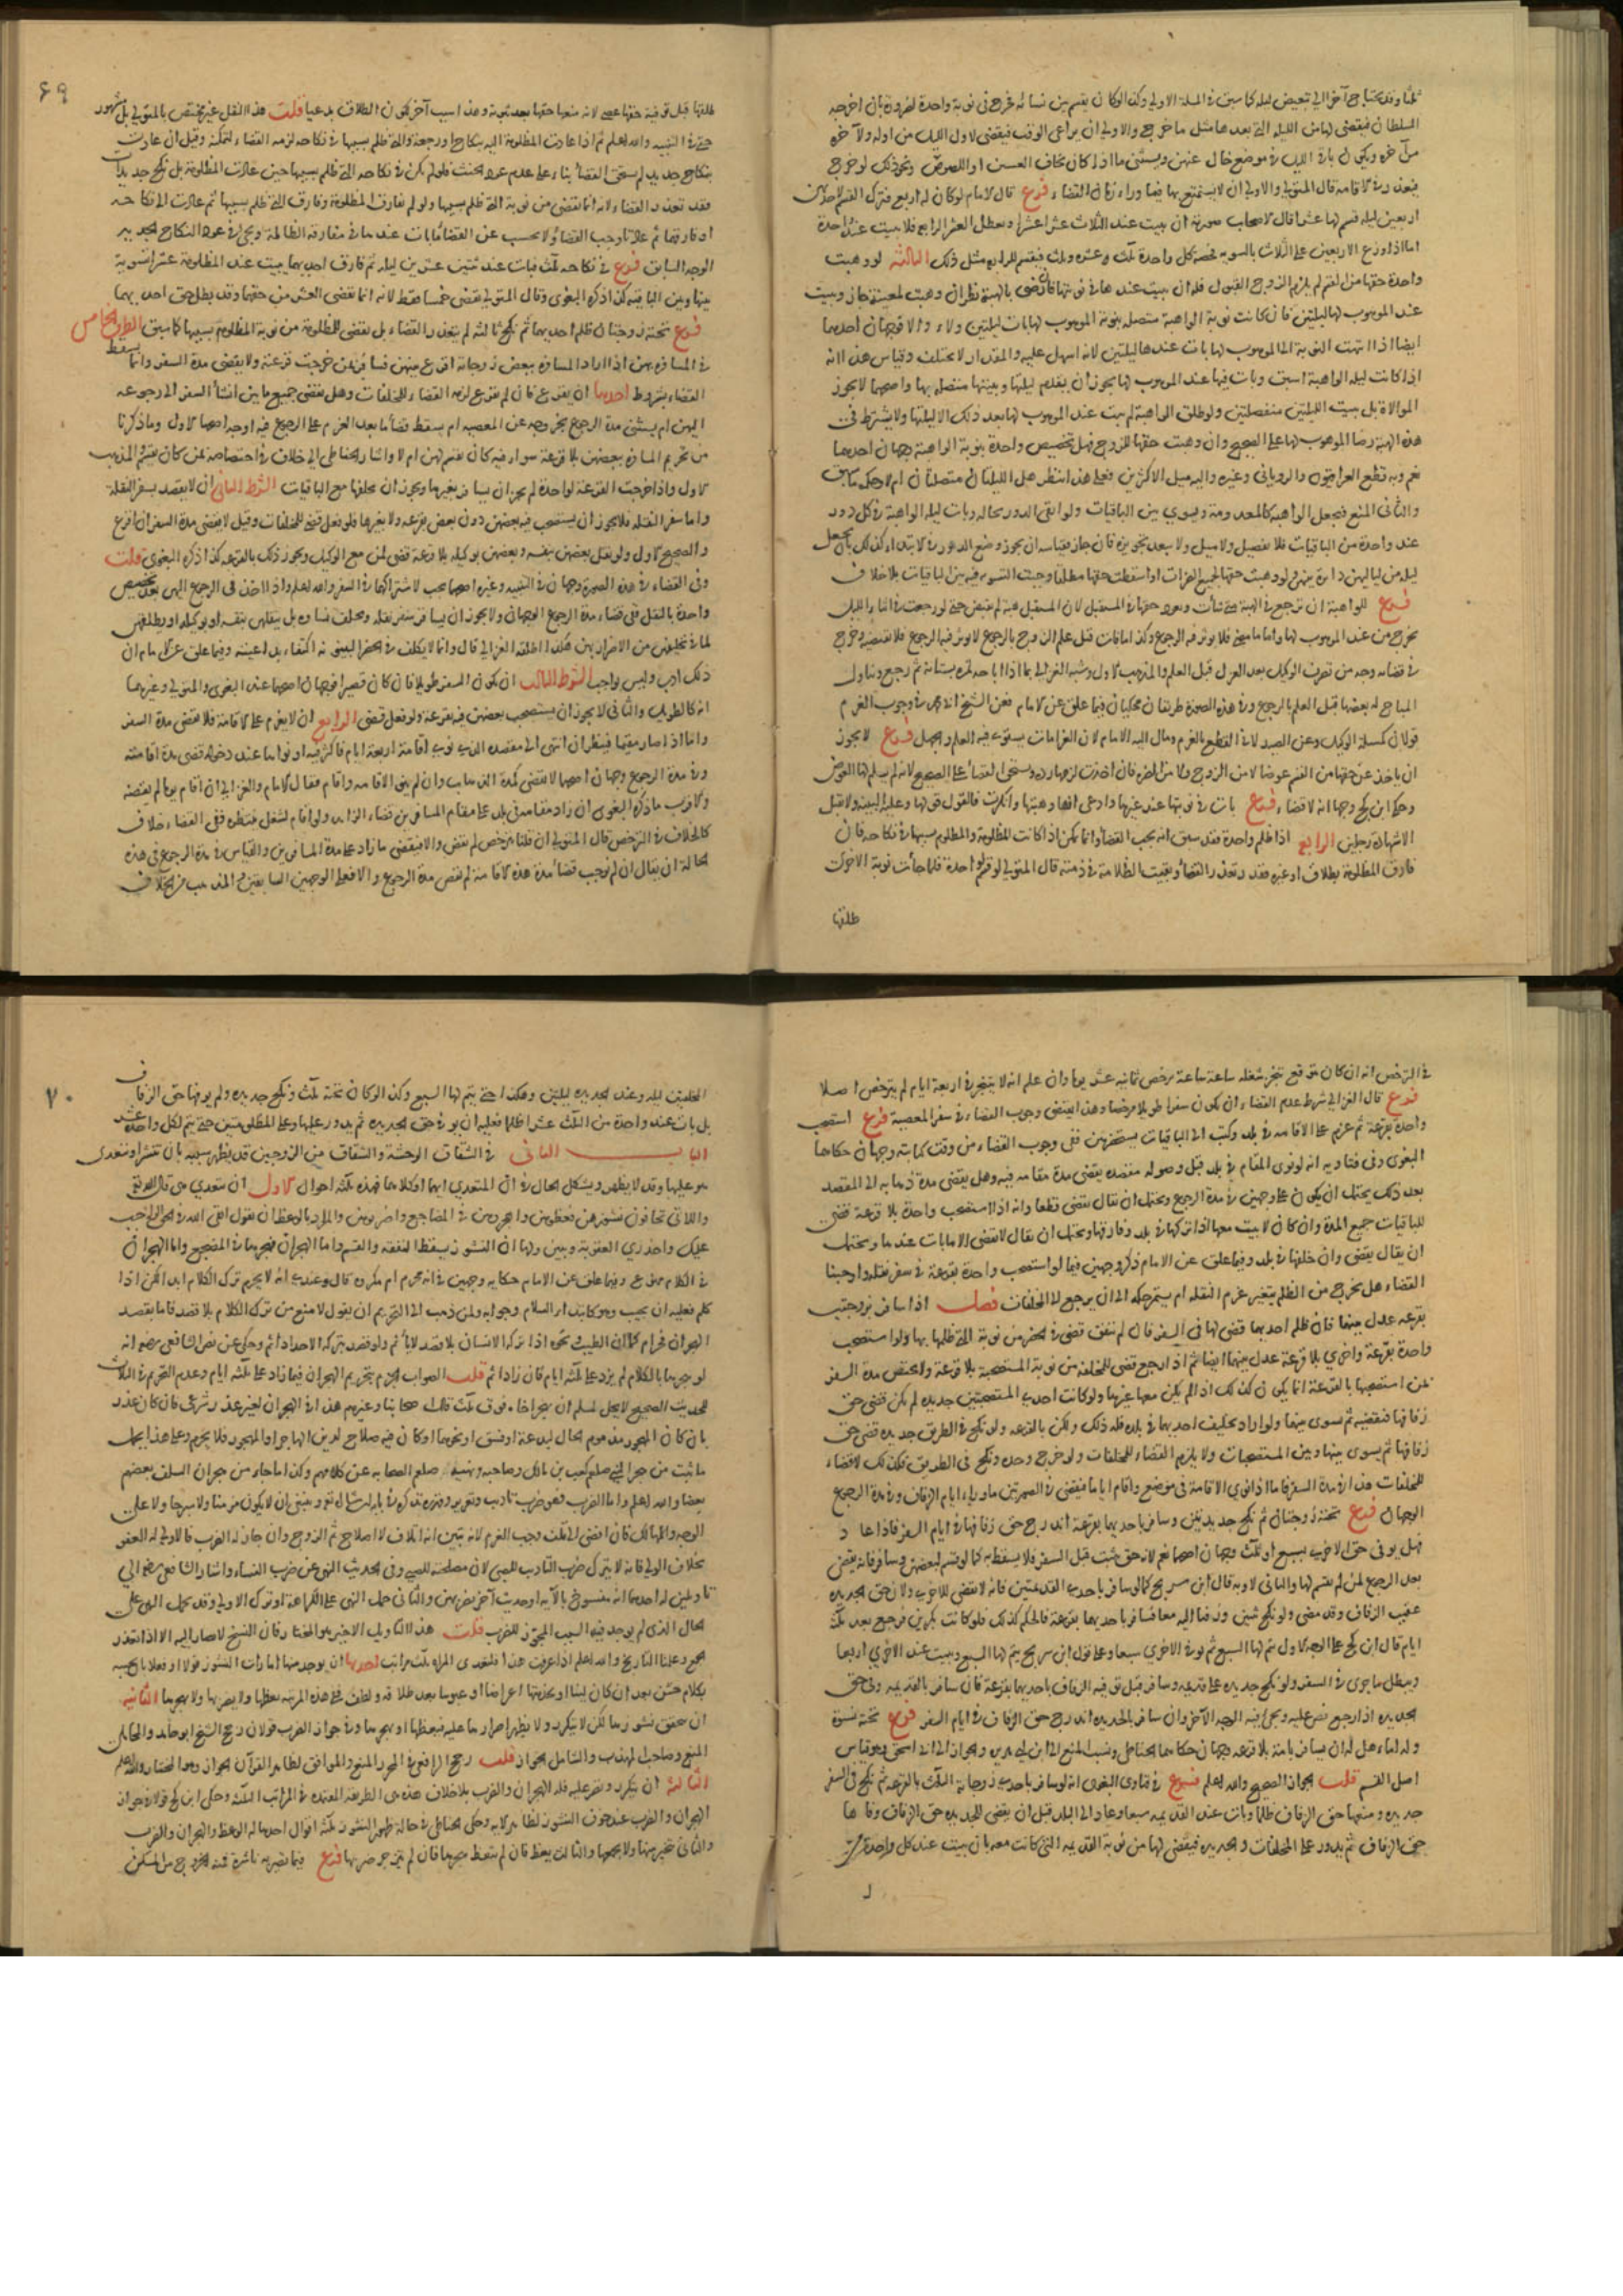 ثلثا وقد يحتاج آخر الي تبعيض ليله كما سبق في المسلة الاولي وكذا لو كان يقسم بين نسائه فخرج في نوبة واحدة لضرورة بان اخرجه
السلطان فيقضي لها من الليله التي بعدها مثل ما خرج والاولي ان يراعي الوقت فيقضي لاول الليل من اوله ولآخره
من آخره ويكون باقي الليل في موضع خال عنهن ويستثنى ما اذا كان يخاف العسس او اللصوص ونحو ذلك لو خرج
فيعذر في الاقامة قال المتولي والاولي ان لا يستمتع بها فيما وراء زمان القضاء فرع قال الامام لو كان له اربع فترك القسم لاحداهن
اربعين ليله قسم لها عشرا قال الاصحاب صورته ان يبيت عند الثلاث عشرا عشرا ويعطل العشر الرابع فلا يبيت عند واحدة
اما اذا وزع الاربعين على الثلاث بالسويه فخص كل واحدة ثلث وعشره وثلث فيقسم للرابعه مثل ذلك الثالثه لو وهبت
واحدة حقها من القسم لم يلزم الزوج القبول فله ان يبيت عندها في نوبتها فان رضي بالهبة نظر ان وهبت لمعينة جاز ويبيت
عند الموهوب لها ليلتين فان كانت نوبة الواهبة متصله بنوبة الموهوب لها بات ليلتين ولاء والا فوجهان احدهما
ايضا اذا انتهت النوبة الى الموهوب لها بات عندها ليلتين لانه اسهل عليه والمقدار لا يختلف وقياس هذا انه
اذا كانت ليله الواهبة اسبق وبات فيها عند الموهوب لها يجوز ان يقدم ليلتها ويبيتها متصله بها واصحهما لا يجوز
الموالاة بل يبيت الليلتين منفصلتين ولو طلق الواهبة لم يبت عند الموهوب لها بعد ذلك الا ليلتها ولا يشترط في
هذه الهبة رضا الموهوب لها على الصحيح وان وهبت حقها للزوج فهل له تخصيص واحدة بنوبة الواهبة وجهان احدهما
نعم وبه قطع العراقيون والروياني وغيره واليه ميل الاكثرين فعلى هذا ينظر هل الليلتان متصلتان ام لا وحكمه ما سبق
والثاني المنع فيجعل الواهبة كالمعدومة ويسوي بين الباقيات ولو ابقى الدور بحاله وبات ليله الواهبة في كل دور
عند واحدة من الباقيات فلا تفضيل ولا ميل ولا يبعد تجويزه فان جاز فقياسه ان يجوز وضع الدور في الابتداء كذلك بان يجعل
ليله من لياليهن دائرة بينهن لو وهبت حقها لجميع الضرات او اسقطت حقها مطلقا وجبت التسوية فيه بين الباقيات بلا خلاف
فرع للواهبة ان ترجع في الهبة متى شأت ويعود حقها في المستقبل لان المستقبل هبة لم تقبض حتى لو رجعت في اثناء الليل
يخرج من عند الموهوب لها واما ما مضى فلا يوثر فيه الرجوع وكذا ما فات قبل علم الزوج بالرجوع لا يوثر فيه الرجوع فلا يقضيه وخرج
في قضائه وجه من تصرف الوكيل بعد العزل قبل العلم والمذهب الاول وشبه الغزالي بما اذا اباحه ثمره بستانه ثم رجع وتناول
المباح له بعضها قبل العلم بالرجوع وفي هذه الصورة طريقان محكيان فيما علق عن الامام فعن الشيخ ان في وجوب الغرم
قولان كمسلة الوكيل وعن الصيدلاني القطع بالغرم ومال اليه الامام لان الغرامات يستوي فيه العلم والجهل فرع لا يجوز
ان ياخذ عن حقها من القسم عوضا لا من الزوج ولا من الضرة فان اخذت لزمها رده ويستحق القضا على الصحيح لانه لم يسلم لها العوض
وحكى ابن كج وجها انه لا قضاء فرع بات في نوبتها عند غيرها وادعى انها وهبتها وانكرت فالقول قولها وعليه البينه ولا يقبل
الا شهادة رجلين الرابع اذا ظلم واحدة فقد سبق انه يجب القضا وانما يمكن اذا كانت المظلومة والمظلوم بسببها في نكاحه فان
فارق المظلومة بطلاق او غيره فقد تعذر القضا وبقيت الظلامة في ذمته قال المتولي لو قسم لواحدة فلما جأت نوبة الاخرى
طلقها
٦٩
طلقها قبل توفية حقها عصى لانه منعها حقها بعد ثبوته وهذا سبب آخر لكون الطلاق بدعيا قلت هذا النقل غير مختص بالمتولي بل مشهور
حتى في التنبيه والله اعلم ثم اذا عادت المظلومة اليه بنكاح او رجعة والتي ظلم بسببها في نكاحه لزمه القضاء لتمكنه وقيل ان عادت
بنكاح جديد لم يستحق القضا بناء على عدم عود الحنث فلو لم يكن في نكاحه التي ظلم بسببها حين عادت المظلومة بل نكح جديدات
فقد تعذر القضاء لانه انما يقضي من نوبة التي ظلم بسببها ولو لم يفارق المظلومة وفارق التي ظلم بسببها ثم عادت الى نكاحه
او فارقهما ثم عادتا وجب القضا ولا يحسب عن القضا ما بات عندها في مفارقة الظالمة ويجي في عود النكاح الجديد
الوجه السابق فرع في نكاحه ثلث فبات عند ثنتين عشرين ليله ثم فارق احديهما يبيت عند المظلومة عشرا تسوية
بينها وبين الباقية كذا ذكره البغوي وقال المتولي يقضي خمسا فقط لانه انما يقضي العشر من حقهما وقد بطل حق احديهما
فرع تحته زوجتان ظلم احديهما ثم نكح ثالثه لم يتعذر القضاء بل يقضي للمظلومة من نوبة المظلوم بسببها كما سبق الطرف الخامس
في المسافرة بهن اذا اراد المسافرة ببعض زوجاته اقرع بينهن فسافر بمن خرجت قرعته ولا يقضي مدة السفر وانما يسقط
القضاء بشروط احدها ان يقرع فان لم يقرع لزمه القضاء للمخلفات وهل يقضي جميع ما بين انشأ السفر الى رجوعه
اليهن ام يستثنى مدة الرجوع بخروجه عن المعصيه ام يسقط قضأ ما بعد العزم على الرجوع فيه اوجه اصحها الاول وما ذكرنا
من تحريم المسافرة ببعضهن بلا قرعة سواء فيه كان يقسم لهن ام لا واشار الحناطي الى خلاف في اختصاصه بمن كان يقسم والمذهب
الاول واذا خرجت القرعة لواحدة لم يجز ان يسافر بغيرها ويجوز ان يخلفها مع الباقيات الشرط الثاني ان لا يقصد بسفره النقلة
واما سفر النقله فلا يجوز ان يستصحب فيه بعضهن دون بعض بقرعه ولا بغيرها فلو فعل قضى للمخلفات وقيل لا يقضي مدة السفر ان اقرع
والصحيح الاول ولو نقل بعضهن بنفسه وبعضهن بوكيله بلا قرعة قضى لمن مع الوكيل ويجوز ذلك بالقرعه كذا ذكره البغوي قلت
وفي القضاء في هذه الصورة وجهان في التنبيه وغيره اصحهما يجب لاشتراكهما في السفر والله اعلم واذا اخذ في الرجوع اليهن بعد تخصيص
واحدة بالنقل ففي قضاء مدة الرجوع الوجهان ولا يجوز ان يسافر سفر نقله ويخلف نساءه بل ينقلهن بنفسه او بوكيله او يطلقهن
لما في تخليفهن من الاضرار بهن هكذا اطلقه الغزالي قال وانما لا يكلف في الحضر البيتوته اكتفاء بداعيته وفيما علق عن الامام ان
ذلك ادب وليس بواجب الشرط الثالث ان يكون السفر طويلا فان كان قصيرا فوجهان اصحهما عند البغوي والمتولي وغيرهما
انه كالطويل والثاني لا يجوز ان يستصحب بعضهن فيه بقرعة ولو فعل قضى الرابع ان لا يعزم على الاقامة فلا يقضي مدة السفر
واما اذا صار مقيما فينظر ان انتهى الى مقصده الذي نوى اقامة اربعة ايام فاكثر فيه او نواها عند دخوله قضى مدة اقامته
وفي مدة الرجوع وجهان اصحهما لا يقضي كمدة الذهاب وان لم ينو الاقامه واقام فقال الامام والغزالي ان اقام يوما لم يقضه
والاقرب ما ذكره البغوي ان زاد مقامه في بلد على مقام المسافرين قضاء الزائد ولو اقام لشغل ينتظره ففي القضاء خلاف
كالخلاف في الترخص قال المتولي ان قلنا يترخص لم يقض والا فيقضي ما زاد على مدة المسافرين والقياس في مدة الرجوع في هذه
الحالة ان يقال ان لم نوجب قضأ مدة هذه الاقامة لم يقض مدة الرجوع والا فعلى الوجهين السابقين في المذهب من الخلاف
في الترخص انه ان كان يتوقع تنجز شغله ساعة ساعة ترخص ثمانية عشر يوما وان علم انه لا ينتجز في اربعة ايام لم يترخص اصلا
فرع قال الغزالي شرط عدم القضاء ان يكون سفرا طويلا مرخصا وهذا يقتضي وجوب القضاء في سفر المعصية فرع استصحب
واحدة بقرعة ثم عزم على الاقامة في بلد وكتب الى الباقيات يستحضرهن ففي وجوب القضاء من وقت كتابته وجهان حكاهما
البغوي وفي فتاويه انه لو نوى المقام في بلد قبل وصوله مقصده يقضي مدة مقامه فيه وهل يقضي مدة ذهابه الى المقصد
بعد ذلك يحتمل ان يكون على وجهين في مدة الرجوع ويحتمل ان يقال يقضي قطعا وانه اذا استصحب واحدة بلا قرعة قضى
للباقيات جميع المدة وان كان لا يبيت معها الا اذا تركها في بلد وفارقها ويحتمل ان يقال لا يقضي الا ما بات عندها ويحتمل
ان يقال يقضي وان خلفها في بلد وفيما علق عن الامام ذكر وجهين فيما لو استصحب واحدة بقرعة في سفر نقله واوجبنا
القضاء هل يخرج من الظلم بتغير عزم النقله ام يستمر حكمه الى ان يرجع الى المخلفات فصل اذا سافر بزوجتين
بقرعه عدل بينهما فان ظلم احديهما قضى لها في السفر فان لم يتفق قضى في الحضر من نوبة التي ظلمها بها ولو استصحب
واحدة بقرعة واخرى بلا قرعة عدل بينهما ايضا ثم اذا رجع قضى للمخلفة من نوبة المستصحبة بلا قرعة ولا يختص مدة السفر
بمن استصحبها بالقرعة انما يكون كذلك اذا لم يكن معها غيرها ولو كانت احدى المستصحبتين جديده لم يكن قضى حق
زفافها فيقضيه ثم يسوي بينهما ولو اراد تخليف احديهما في بلد فله ذلك ولكن بالقرعه ولو نكح في الطريق جديده قضى حق
زفافها ثم يسوي بينها وبين المستصحبات ولا يلزم القضاء للمخلفات ولو خرج وحده ونكح في الطريق فكذلك لا قضاء
للمخلفات هذا في مدة السفر فاما اذا نوى الاقامة في موضع واقام اياما فيقضي في الصورتين ما وراء ايام الزفاف وفي مدة الرجوع
الوجهان فرع تحته زوجتان ثم نكح جديدتين وسافر باحديهما بقرعة اندرج حق زفافها في ايام السفر فاذا عاد
فهل يوفي حق الاخرى بسبع او ثلث وجهان اصحهما نعم لانه حق ثبت قبل السفر فلا يسقط به كما لو قسم لبعضهن وسافر فانه يقضي
بعد الرجوع لمن لم يقسم لها والثاني لا وبه قال ابن سريج كما لو سافر باحدى القديمتين فانه لا يقضي للاخرى ولان حق الجديده
عقيب الزفاف وقد مضى ولو نكح ثنتين وزفتا اليه معا فسافر باحديهما بقرعة فالحكم كذلك فلو كانتا بكرين فرجع بعد ثلث
ايام قال ابن كج على الوجه الاول يتم لها السبع ثم يوفي الاخرى سبعا وعلى قول ابن سريج يتم لها السبع ويبيت عند الاخرى اربعا
ويبطل ما جرى في السفر ولو نكح جديده على قديمه وسافر قبل توفية الزفاف باحديهما بقرعة فان سافر بالقديمه وفى حق
الجديده اذا رجع نص عليه ويجي فيه الوجه الآخر وان سافر بالجديده اندرج حق الزفاف في ايام السفر فرع تحته نسوة
وله اماء هل له ان يسافر بامة بلا قرعه وجهان حكاهما الحناطي ونسب المنع الى ابن ابي هريره والجواز الى ابي اسحق وهو قياس
اصل القسم قلت الجواز الصحيح والله اعلم فرع في فتاوى البغوي انه لو سافر باحدى زوجاته الثلث بالقرعه ثم نكح في السفر
جديده ومنعها حق الزفاف ظلما وبات عند القديمه سبعا وعاد الى البلد قبل ان يقضي للجديده حق الزفاف وفاها
حق الزفاف ثم يدور على المخلفات والجديده فيقضي لها من نوبة القديمه التي كانت معه بان يبيت عند كل واحدة من
٧٠
المخلفتين ليله وعند الجديده ليلتين وهكذا حتى يتم لها السبع وكذا لو كان تحته ثلث ونكح جديده ولم يوفها حق الزفاف
بل بات عند واحدة من الثلث عشرا ظلما فعليه ان يوفي حق الجديده ثم يدور عليها وعلى المظلومتين حتى يتم لكل واحدة عشر
الباب الثاني في الشقاق الوحشة والشقاق بين الزوجين قد يظهر سببه بان تنشز او يتعدى
هو عليها وقد لا يظهر ويشكل الحال في ان المتعدي ايهما او كلاهما فهذه ثلثه احوال الاول ان تتعدي هي قال الله تعالى
واللاتي تخافون نشوزهن فعظوهن واهجروهن في المضاجع واضربوهن والمراد بالوعظ ان يقول اتقي الله في الحق الواجب
عليك واحذري العقوبة ويبين لها ان النشوز يسقط النفقه والقسم واما الهجران فهجرها في المضجع واما الهجران
في الكلام ممنوع وفيما علق عن الامام حكاية وجهين في انه محرم ام مكروه قال وعندي انه لا يحرم ترك الكلام ابدا لكن اذا
كلم فعليه ان يجيب وهو كابتداء السلام وجوابه ولمن ذهب الى التحريم ان يقول لا منع من ترك الكلام بلا قصد فاما بقصد
الهجران فحرام كما ان الطيب ونحوه اذا تركه الانسان بلا قصد لا يأثم ولو قصد بتركه الاحداد اثم وحكي عن نص الشافعي رضه انه
لو هجرها بالكلام لم يزد على ثلثه ايام فان زاد اثم قلت الصواب الجزم بتحريم الهجران فيما زاد على ثلثه ايام وعدم التحريم في الثلاث
للحديث الصحيح لا يحل لمسلم ان يهجر اخاه فوق ثلث قالت اصحابنا وغيرهم هذا في الهجران لغير عذر شرعي فان كان عذر
بان كان المهجور مذموم الحال لبدعة او فسق او نحوهما او كان فيه صلاح لدين الهاجر او المهجور فلا يحرم وعلى هذا يحمل
ما ثبت من هجر النبي صلعم كعب بن مالك وصاحبيه ونهيه صلعم الصحابه عن كلامهم وكذا ما جاء من هجران السلف بعضهم
بعضا والله اعلم واما الضرب فهو ضرب تاديب وتعزير وقدره نذكره في بابه ان شا الله تعو وينبغي ان لا يكون مدميا ولا مبرحا ولا على
الوجه والمهالك فان افضى الى تلف وجب الغرم لانه تبين انه اتلاف لا اصلاح ثم الزوج وان جاز له الضرب فالاولى له العفو
بخلاف الولي فانه لا يترك ضرب التاديب للصبي لان مصلحته للصبي وفي الحديث النهي عن ضرب النساء واشار الشافعي رض الي
تاويلين له احدهما انه منسوخ بالآيه او حديث آخر بضربهن والثاني حمل النهي على الكراهة او ترك الاولى وقد يحمل النهي على
الحال الذي لم يوجد فيه السبب المجوز للضرب قلت هذا التاويل الاخير هو المختار فان النسخ لا يصار اليه الا اذا تعذر
الجمع وعلمنا التاريخ والله اعلم اذا عرفت هذا فلتعدي المرأه ثلث مراتب احدها ان يوجد منها امارات النشوز قولا او فعلا بان تجيبه
بكلام خشن بعد ان كان لينا او يجد منها اعراضا او عبوسا بعد طلاقه ولطف ففي هذه المرتبه يعظها ولا يضربها ولا يهجرها الثانيه
ان يتحقق نشوزها لكن لا يتكرر ولا يظهر اصرارها عليه فيعظها او يهجرها وفي جواز الضرب قولان رجح الشيخ ابو حامد والمحاملي
المنع وصاحبا المهذب والشامل الجواز قلت رجح الرافعي في المحرر المنع والموافق لظاهر القرآن الجواز وهو المختار والله اعلم
الثالثة ان يتكرر وتصر عليه فله الهجران والضرب بلا خلاف هذه هي الطريقه المعتمده في المراتب الثلثه وحكى ابن كج قولا في جواز
الهجران والضرب عند خوف النشوز لظاهر الايه وحكى الحناطي في حالة ظهور النشوز ثلثه اقوال احدها له الوعظ والهجران والضرب
والثاني تتخير بينها ولا يجمعها والثالث يعظ فان لم تتعظ هجرها فان لم تنزجر ضربها فرع فيما تصير به ناشزة فمنه الخروج من المسكن